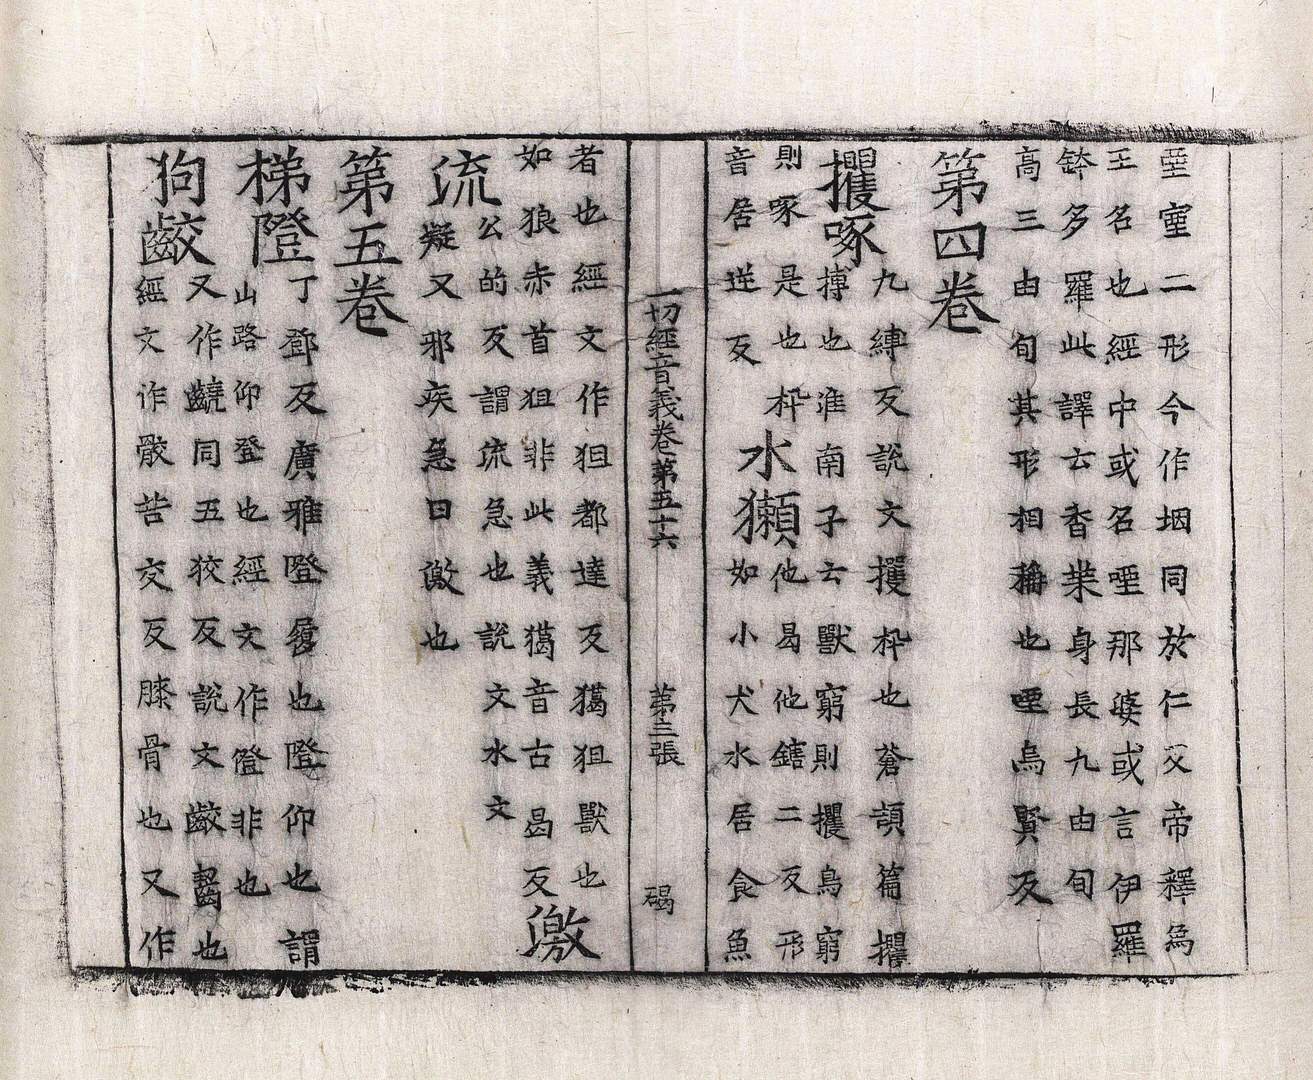 堙窒二形今作堙同於仁父帝釋烏
王名也經中或名堙那婆或言伊羅
鉢多羅此譯云香葉身長九由旬
高三由旬其形相稱也堙烏賢反
第四卷
攫啄九縛反說文攫枠也蒼頡篇攫
搏也淮南子云獸窮則攫鳥窮
則啄是也枠
水獺他曷他鎋二反形
音居逆反
如小犬水居食魚
一切經音義卷第五十六 第三張 碣
者也經文作狚都達反獦狚獸也
如狼赤首狚非此義獦音古曷反
激流公的反謂流急也說文水文
凝又邪疾急曰激也
第五卷
梯隥丁鄧反廣雅隥履也隥仰也謂
山路仰登也經文作磴非也
狗齩又作齩同五狡反說文齩齧也
經文作骹苦交反膝骨也又作